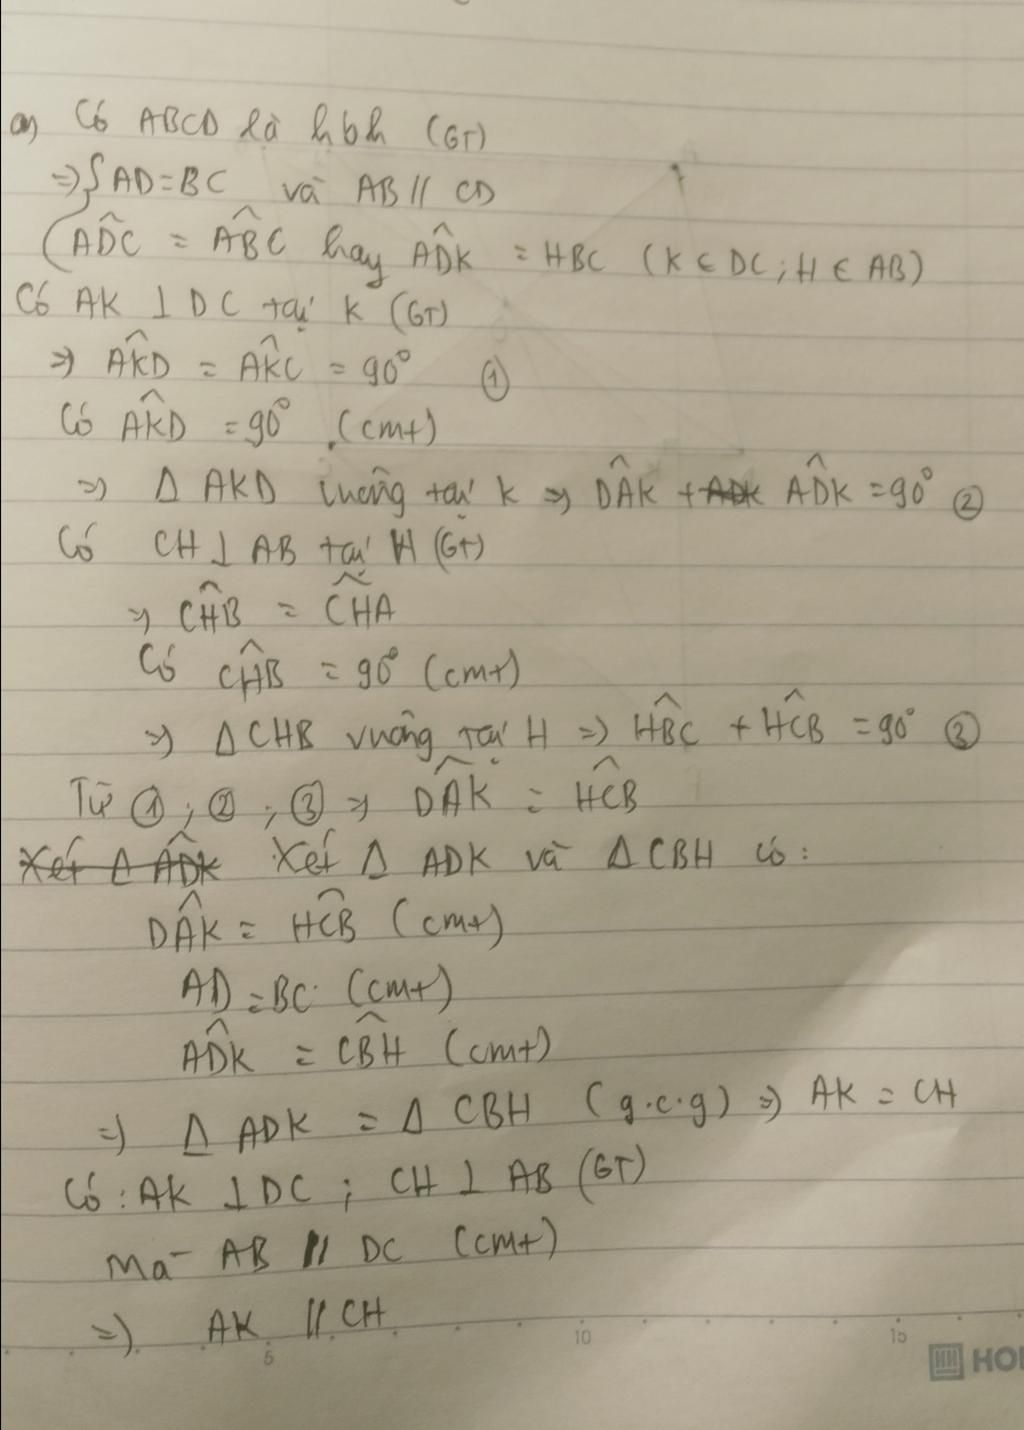 a) Có ABCD là hbh (GT)
=> { AD = BC và AB // CD
ADC = ABC hay ADK = HBC (K ∈ DC; H ∈ AB)
Có AK ⊥ DC tại K (GT)
=> AKD = AKC = 90° ①
Có AKD = 90° (cmt)
=> Δ AKD vuông tại K => DAK + ADK ADK = 90° ②
Có CH ⊥ AB tại H (GT)
=> CHB = CHA
Có CHB = 90° (cmt)
=> Δ CHB vuông tại H => HBC + HCB = 90° ③
Từ ①, ②, ③ => DAK = HCB
Xét Δ ADK Xét Δ ADK và Δ CBH có:
DAK = HCB (cmt)
AD = BC (cmt)
ADK = CBH (cmt)
=> Δ ADK = Δ CBH (g.c.g) => AK = CH
Có: AK ⊥ DC; CH ⊥ AB (GT)
Mà AB // DC (cmt)
=> AK // CH
5 10 15